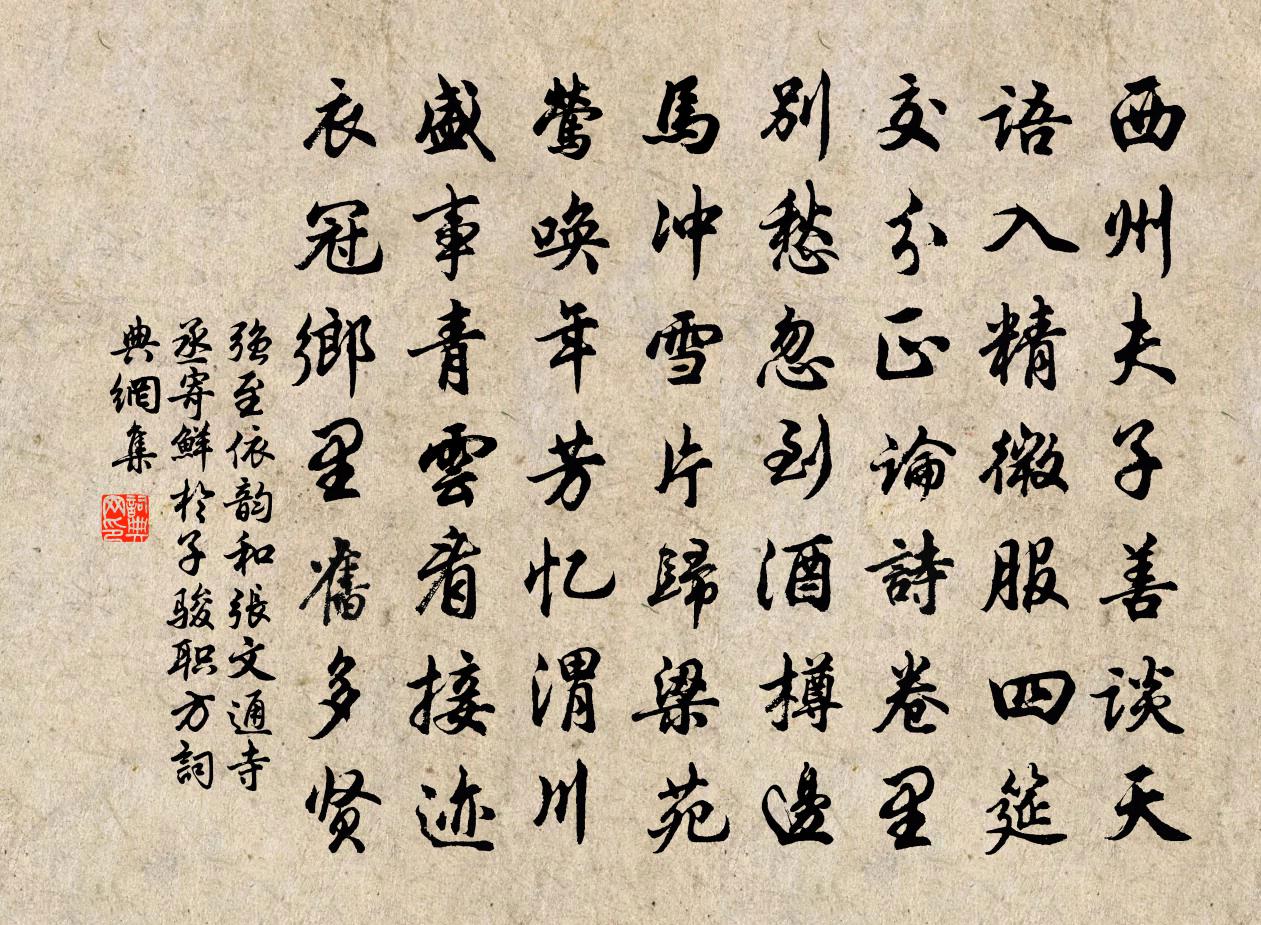 西州夫子善谈天
语入精微服四筵
交分正論詩卷里
别愁忽到酒樽邊
馬冲雪片歸梁苑
莺唤年芳忆渭川
盛事青雲看接迹
衣冠鄉里舊多贤
强至依韵和張文通寺
丞寄鮮於子骏职方詞
典網集
詞典網印